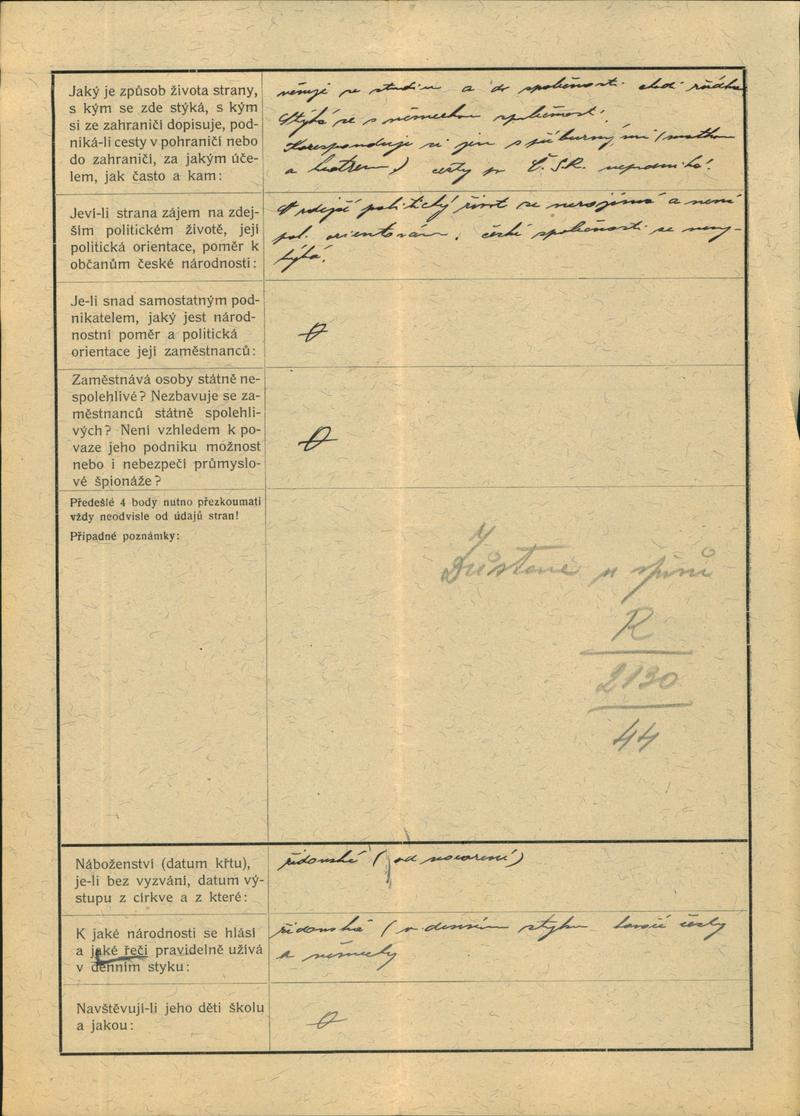 Jaký je způsob života strany,
s kým se zde stýká, s kým
si ze zahraničí dopisuje, pod-
niká-li cesty v pohraničí nebo
do zahraničí, za jakým úče-
lem, jak často a kam:
věnuje se studiu a do společnosti chodí zřídka
Stýká se s německou společností.
Koresponduje si jen s příbuznými (matkou
a bratrem) cesty po Č.S.R. nepodniká.
Jeví-li strana zájem na zdej-
ším politickém životě, její
politická orientace, poměr k
občanům české národnosti:
O zdejší politický život se nezajímá a není
pol. orientován. české společnosti se nestý-
ká.
Je-li snad samostatným pod-
nikatelem, jaký jest národ-
nostní poměr a politická
orientace její zaměstnanců:
Zaměstnává osoby státně ne-
spolehlivé? Nezbavuje se za-
městnanců státně spolehli-
vých? Není vzhledem k po-
vaze jeho podniku možnost
nebo i nebezpečí průmyslo-
vé špionáže?
Předešlé 4 body nutno přezkoumati
vždy neodvisle od údajů stran!
Případné poznámky:
Zůstane u spisů
R
2130
44
Náboženství (datum křtu),
je-li bez vyzvání, datum vý-
stupu z církve a z které:
židovské (od narození)
K jaké národnosti se hlásí
a jaké řeči pravidelně užívá
v denním styku:
židovská (v denním styku hovoří česky
a německy
Navštěvují-li jeho děti školu
a jakou: